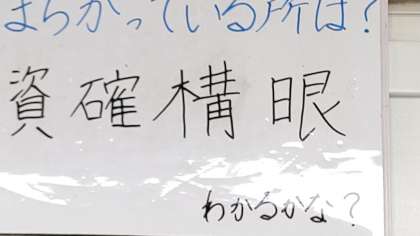 まちがっている所は?
資確構眼
わかるかな?